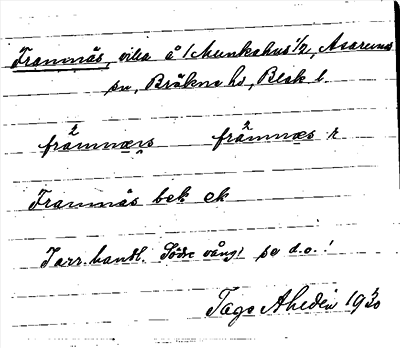 Framnäs, villa å 1 Munkahus 1/2, Asarums
sn, Bräkne hd, Blek l.
främnæs främnæs
Framnäs bek ek
I arr. handl. Södre vång) se d.o.!
Tage Ahedin 1930